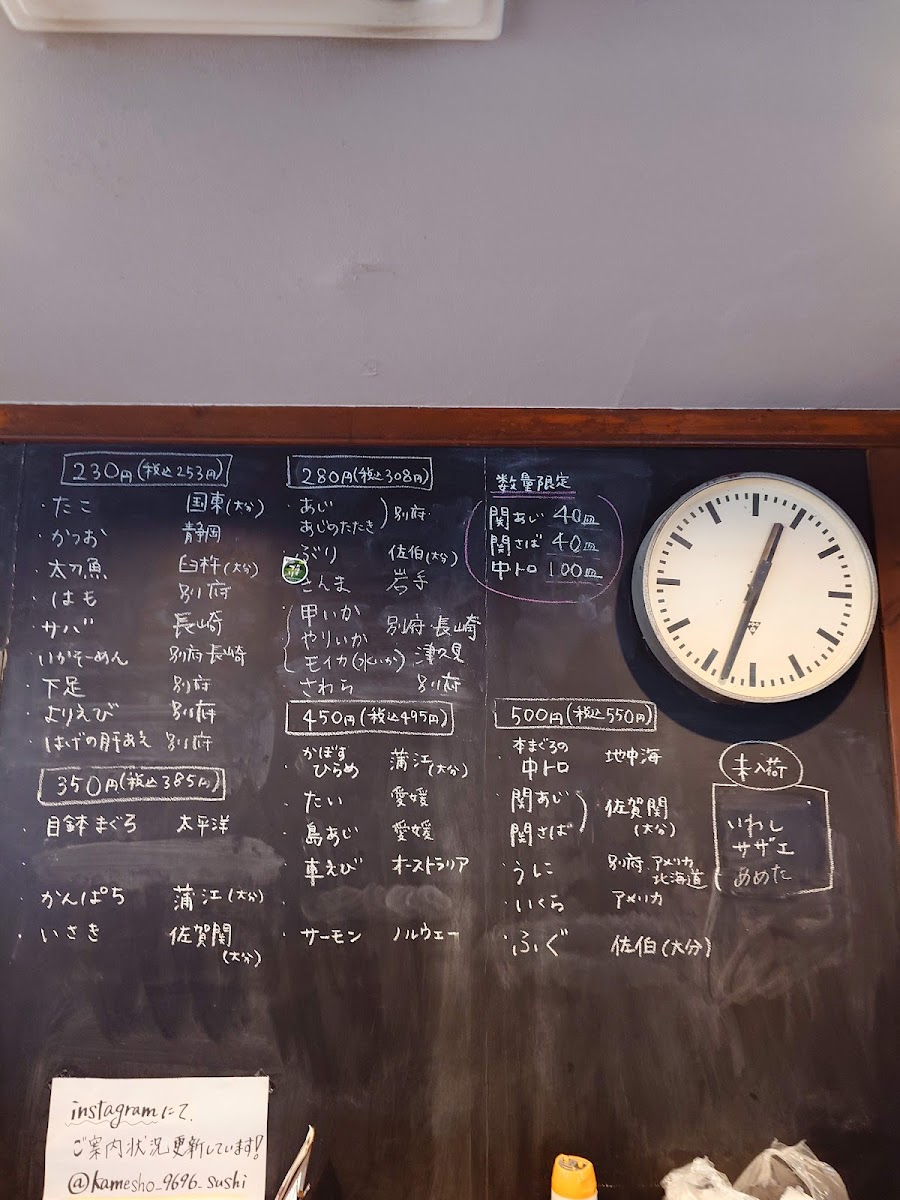 230円(税込253円)
・たこ 国東(大分)
・かつお 静岡
・太刀魚 臼杵(大分)
・はも 別府
・サバ 長崎
・いかそーめん 別府 長崎
・下足 別府
・よりえび 別府
・はげの肝あえ 別府
350円(税込385円)
・目鉢まぐろ 太平洋
・かんぱち 蒲江(大分)
・いさき 佐賀関
(大分)
280円(税込308円)
・あじ
あじのたたき 別府
・ぶり 佐伯(大分)
さんま 岩手
・甲いか
やりいか 別府 長崎
モイカ(水いか) 津久見
・さわら 別府
450円(税込495円)
・かぼす
ひらめ 蒲江(大分)
・たい 愛媛
・島あじ 愛媛
・車えび オーストラリア
・サーモン ノルウェー
数量限定
関あじ 40皿
関さば 40皿
中トロ 100皿
500円(税込550円)
・本まぐろの
中トロ 地中海
・関あじ
関さば 佐賀関
(大分)
・うに 別府・アメリカ
北海道
・いくら アメリカ
・ふぐ 佐伯(大分)
未入荷
いわし
サザエ
あめた
instagramにて、
ご案内状況更新しています!
@kamesho_9696_sushi